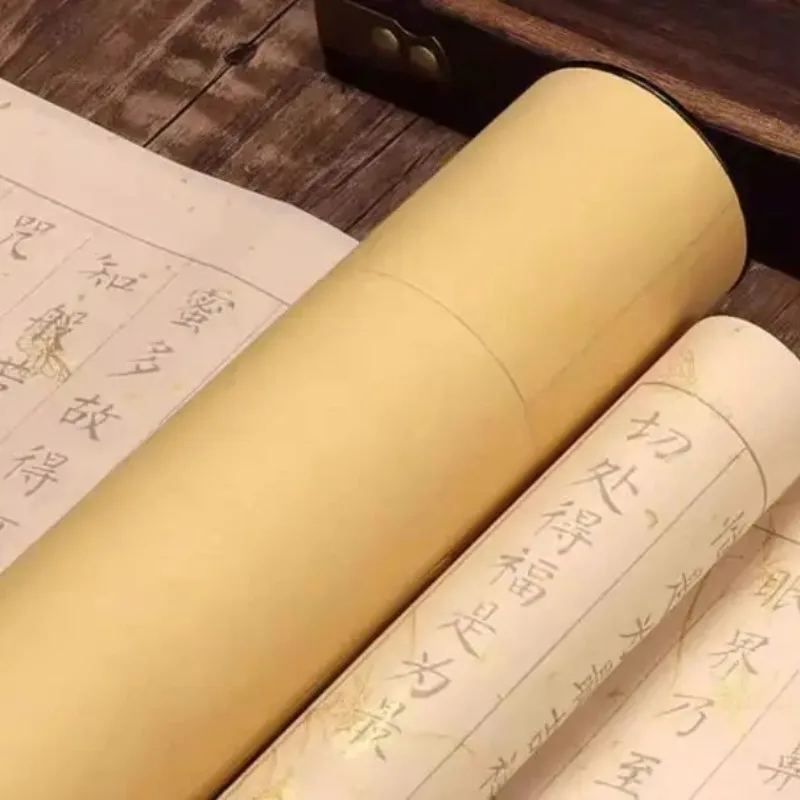 鼻
眼界乃至
切处得福是为最
蜜多故得
知般若
咒